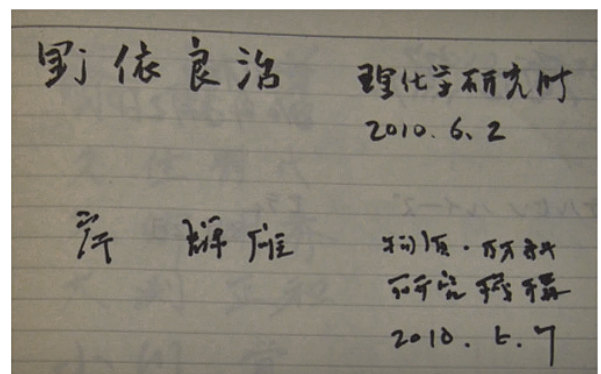 野依良治 理化学研究所
2010.6.2
岸 輝雄 物質・材料
研究機構
2010.